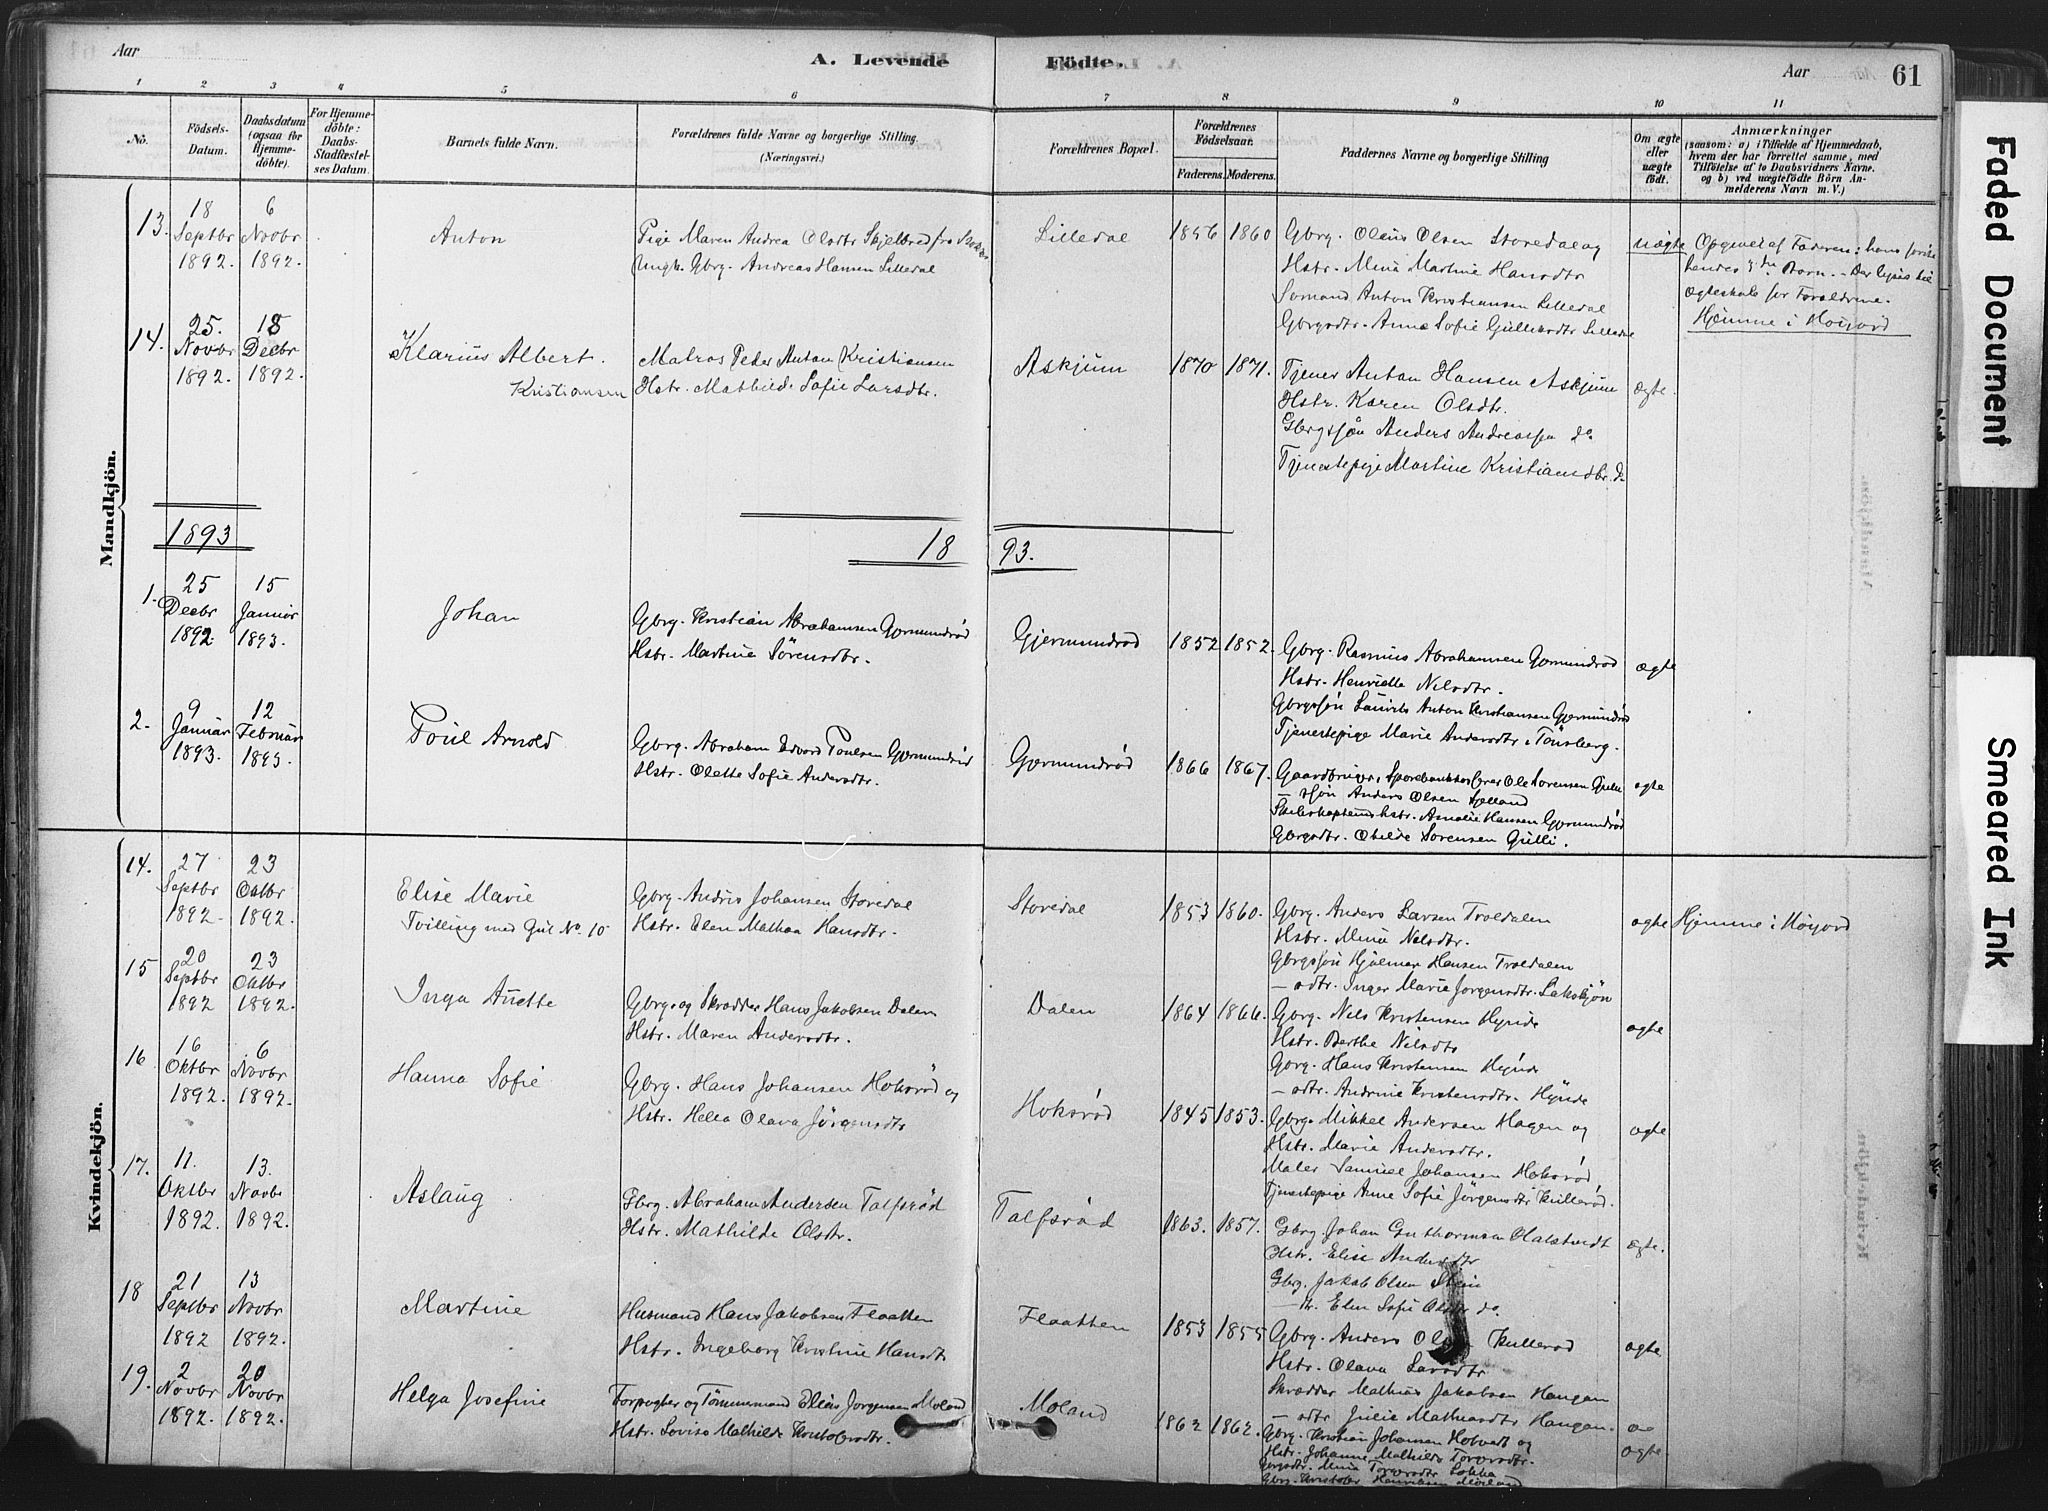 Aar
A. Levende
Födte.
Aar
61
1 2 3 4 5 6 7 8 9 10 11
No.
Födsels-Datum.
Daabsdatum (ogsaa för Hjemme-döbte).
For Hjemme-döbte: Daabs-Stadfæstel-ses Datum.
Barnets fulde Navn.
Forældrenes fulde Navne og borgerlige Stilling.
(Næringsvei.)
Forældrenes Bopæl.
Forældrenes Födselsaar.
Faderens. Moderens.
Faddernes Navne og borgerlige Stilling
Om ægte eller uægte födt.
Anmærkninger
(saasom: a) i Tilfælde af Hjemmedaab,
hvem der har forrettet samme, med
Tilföielse af to Daabsvidners Navne.
og b) ved uægtefödte Börn An-
melderens Navn m. V.)
Mandkjön.
13.
18 Septbr 1892.
6 Novbr 1892.
Anton
Pige Maren Andrea Olsdtr Skjelbred fra
Ungk. Gbrg. Andreas Hansen Lilledal
Lilledal
1856 1860
Gbrg. Olaus Olsen Storedal og
Hstr. Mina Martine Hansdtr
Sømand Anton Kristiansen Lilledal
Gbrgsdtr. Anne Sofie Gulliksdtr Lilledal
uægte
Opgivet af Faderen: hans første
hendes 3die Barn. - Der lyses til
ægteskab for Forældrene.
Hjemme i Höijord
14.
25. Novbr 1892.
18 Decbr 1892.
Klarius Albert.
Kristiansen
Matros Peder Anton Kristiansen
Hstr. Mathilde Sofie Larsdtr.
Askjum
1870 1871.
Tjener Anton Hansen Askjum
Hstr. Karen Olsdtr.
Gbrgssön Anders Andreassen do
Tjenestepige Martine Kristiansdtr. do
ægte.
1893
18 93.
1.
25 Decbr 1892.
15 Januar 1893.
Johan
Gbrg. Kristian Abrahamsen Gjermundröd
Hstr. Martine Sörensdtr.
Gjermundröd
1852 1852.
Gbrg. Rasmus Abrahamsen Gjermundröd
Hstr. Henriette Nilsdtr.
Gbrgssön Laurits Anton Kristiansen Gjermundröd
Tjenestepige Marie Andersdtr. Tönsberg.
ægte
2.
9 Januar 1893.
12 Februar 1893.
Poul Arnold
Gbrg. Abraham Edvard Poulsen Gjermundröd
Hstr. Olette Sofie Andersdtr.
Gjermundröd
1866 1867.
Gaardbruger, Sparebankkasserer Ole Sorensen Gulli
— sön Anders Olsen Sjelland
Skibskapteinshstr. Amalie Hansen Gjermundröd
Gbrgsdtr. Otilde Sorensen Gulli.
ægte
Kvindekjön.
14.
27 Septbr 1892.
23 Oktbr 1892.
Elise Marie
Tvilling med Gut No. 10
Gbrg. Andris Johansen Storedal
Hstr. Elen Mathea Hansdtr.
Storedal
1853 1860.
Gbrg. Anders Larsen Troldalen
Hstr. Mina Nilsdtr.
Gbrgssön Hjalmar Hansen Troldalen
— sdtr. Inger Marie Jorgensdtr. Lakskjön
ægte
Hjemme i Höijord
15
20 Septbr 1892
23 Oktbr 1892.
Inga Anette
Gbrg. og Skrædder Hans Jakobsen Dalen
Hstr. Maren Andersdtr.
Dalen
1864 1866.
Gbrg. Nils Kristensen Hynde
Hstr. Berthe Nilsdtr
Gbrg. Hans Kristensen Hynde
— sdtr. Andrine Kristensdtr. Hynde
ægte
16
16 Oktbr 1892.
6 Novbr 1892.
Hanna Sofie
Gbrg. Hans Johansen Hoksröd og
Hstr. Helea Olava Jörgensdtr
Hoksröd
1845 1853.
Gbrg. Mikkel Andersen Hagen og
Hstr. Marie Andersdtr.
Maler Samuel Johansen Hoksröd
Tjenestepige Anne Sofie Jörgensdtr Kulleröd.
ægte
17.
11. Oktbr 1892.
13. Novbr 1892.
Aslaug
Gbrg. Abraham Andersen Talfsröd
Hstr. Mathilde Olsdtr.
Talfsröd
1863. 1857.
Gbrg Johan Guthormsen Halstvedt
Hstr. Elise Andersdtr
Gbrg. Jakob Olsen Stein
— dtr. Elen Sofie Olsdtr do.
ægte.
18
21 Septbr 1892
13 Novbr 1892.
Martine
Husmand Hans Jakobsen Flaatten
Hstr. Ingeborg Kristine Hansdtr
Flaatten
1853 1855
Gbrg. Anders Olsen Kulleröd
Hstr. Olava Larsdtr
Skrædder Mathias Jakobsen Haugan
— sdtr Julie Mathiasdtr Haugan.
ægte
19.
2 Novbr 1892.
20 Novbr 1892.
Helga Josefine
Forpagter og Tömmermand Elias Jorgensen Moland
Hstr. Lovise Mathilde Kristofersdtr.
Moland
1862 1862.
Gbrg. Kristian Johansen Hotvedt og
Hstr. Johanne Mathilde Torersdtr.
Gbrgsdtr. Mina Torersdtr Løkka
Gbrg. Kristofer Henriksen Moland
ægte
Faded Document
Smeared Ink